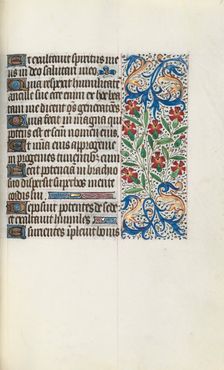 Et exultavit spiritus me
us in deo salutari meo
Quia respexit humilitatē
ancille sue ecce enim ex hoc bea
tam me dicent oēs generacōes
Quia fecit m magna qui
potens est et scm nomen eius
Et mia eius a progenie
in progenies timentibz eum
Fecit potenciā in brachio
suo dispersit superbos mente
cordis sui
Deposuit potentes de sede
et exaltavit humiles
Esurientes iplevit bonis